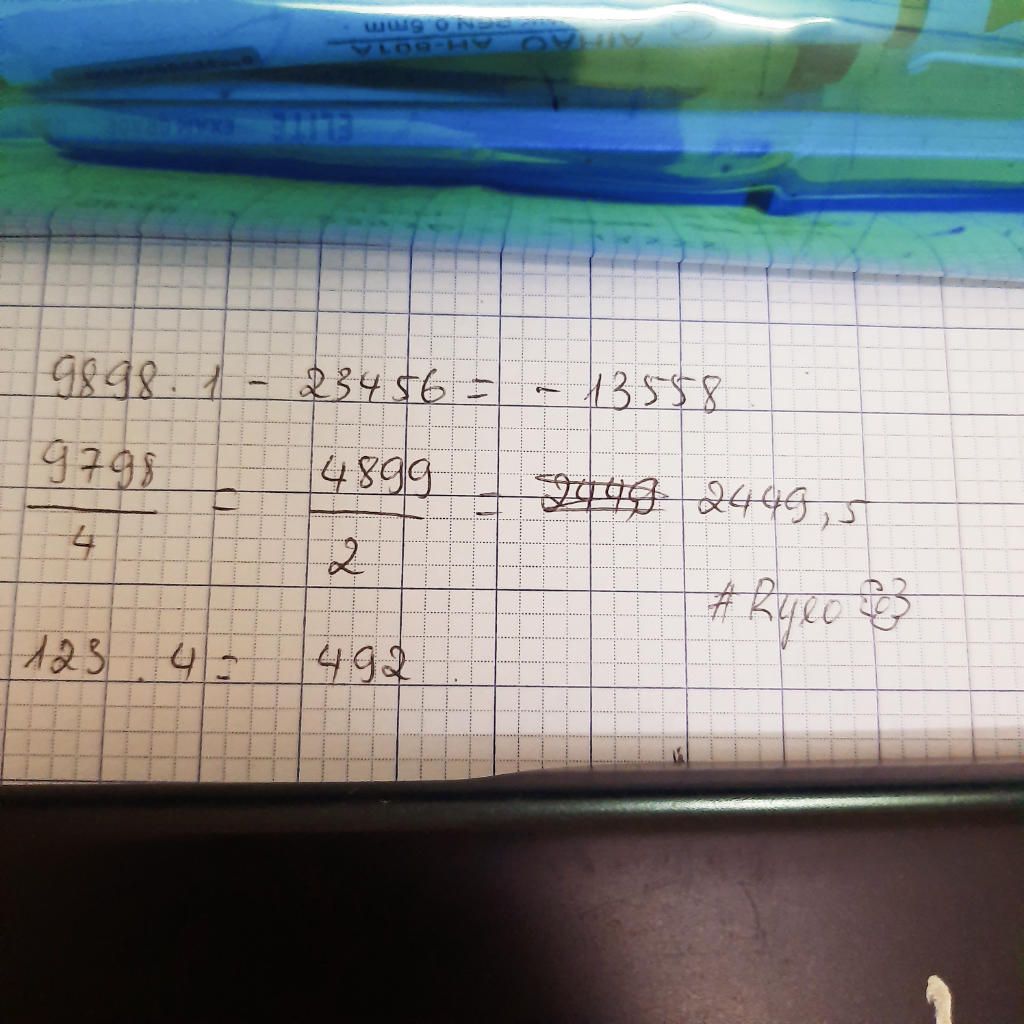 AIHAO AH-801A
0.5mm
ELITE
9898 . 1 - 23456 = - 13558
9798/4 = 4899/2 = 2449,5
#Ryeo
123 . 4 = 492